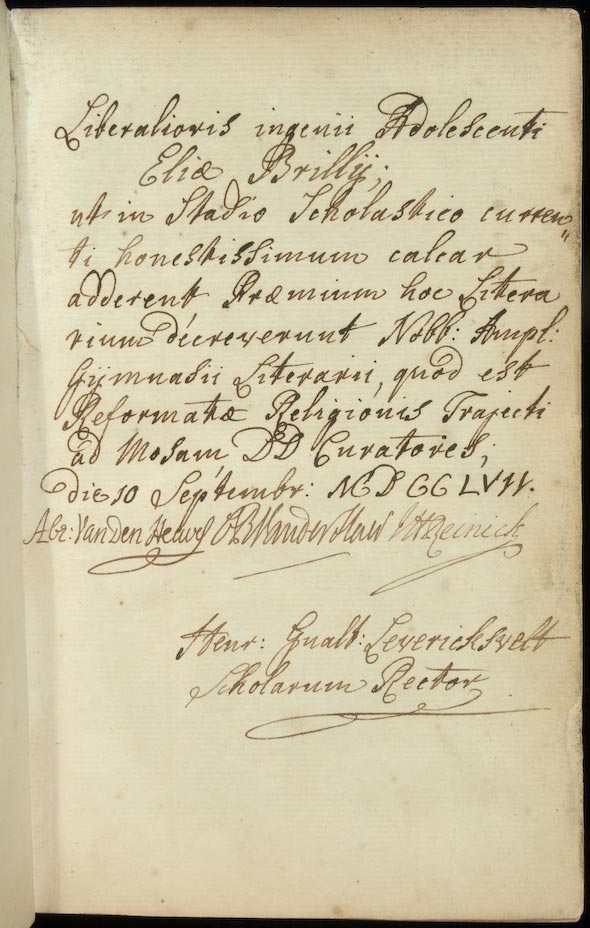 Liberalioris ingenii Adolescenti
Eliæ Brillij;
ut in Stadio Scholastico curren„
ti honestissimum calcar
adderent Præmium hoc Litera
rium decreverunt Nobb: Ampl:
Gymnasii Literarii, quod est
Reformatæ Religionis Trajecti
ad Mosam DD Curatores,
die 10 Septembr: MDCCLVII.
Abr: Van Den Heuvel Vander
Henr: Gualt: Leverickvelt
Scholarum Rector